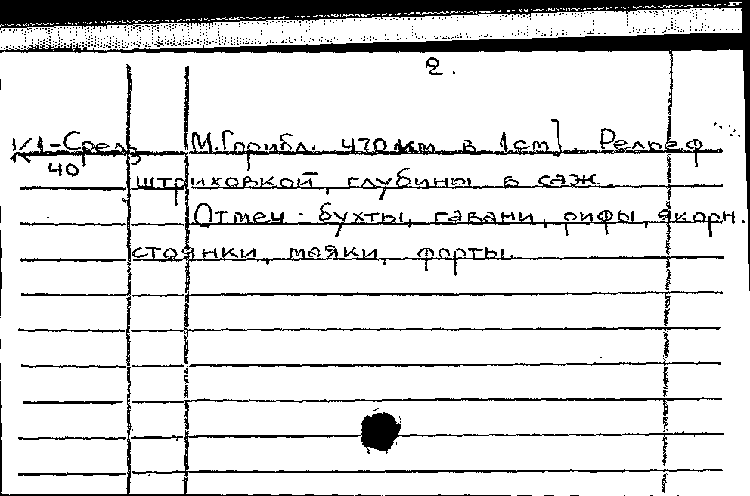 2.
К1-Средз [М.[прибл. 470 км в 1см]. Рельеф
40
штриховкой, глубины в саж.
Отмеч: бухты, гавани, рифы, якорн.
стоянки, маяки, форты.